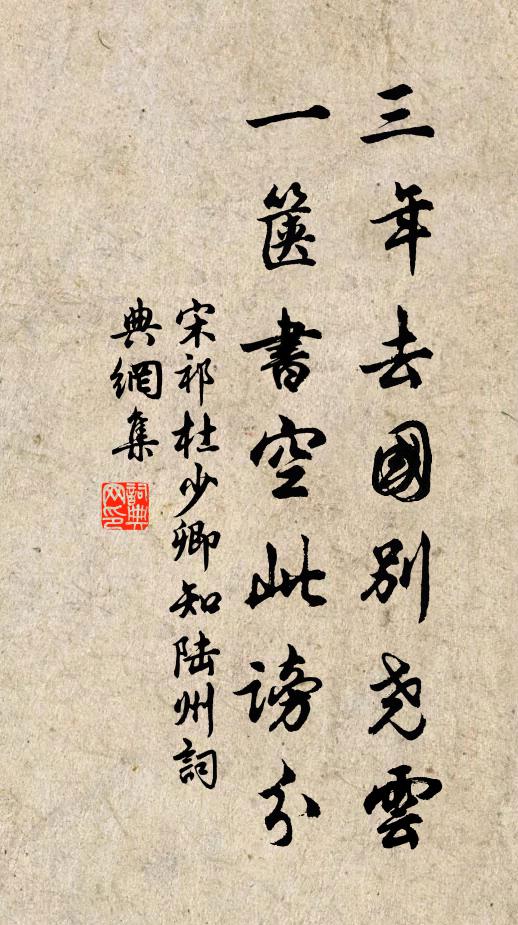 三年去國別尧雲
一篋書空此謗分
宋祁杜少卿知陆州詞
典網集
詞典
网印